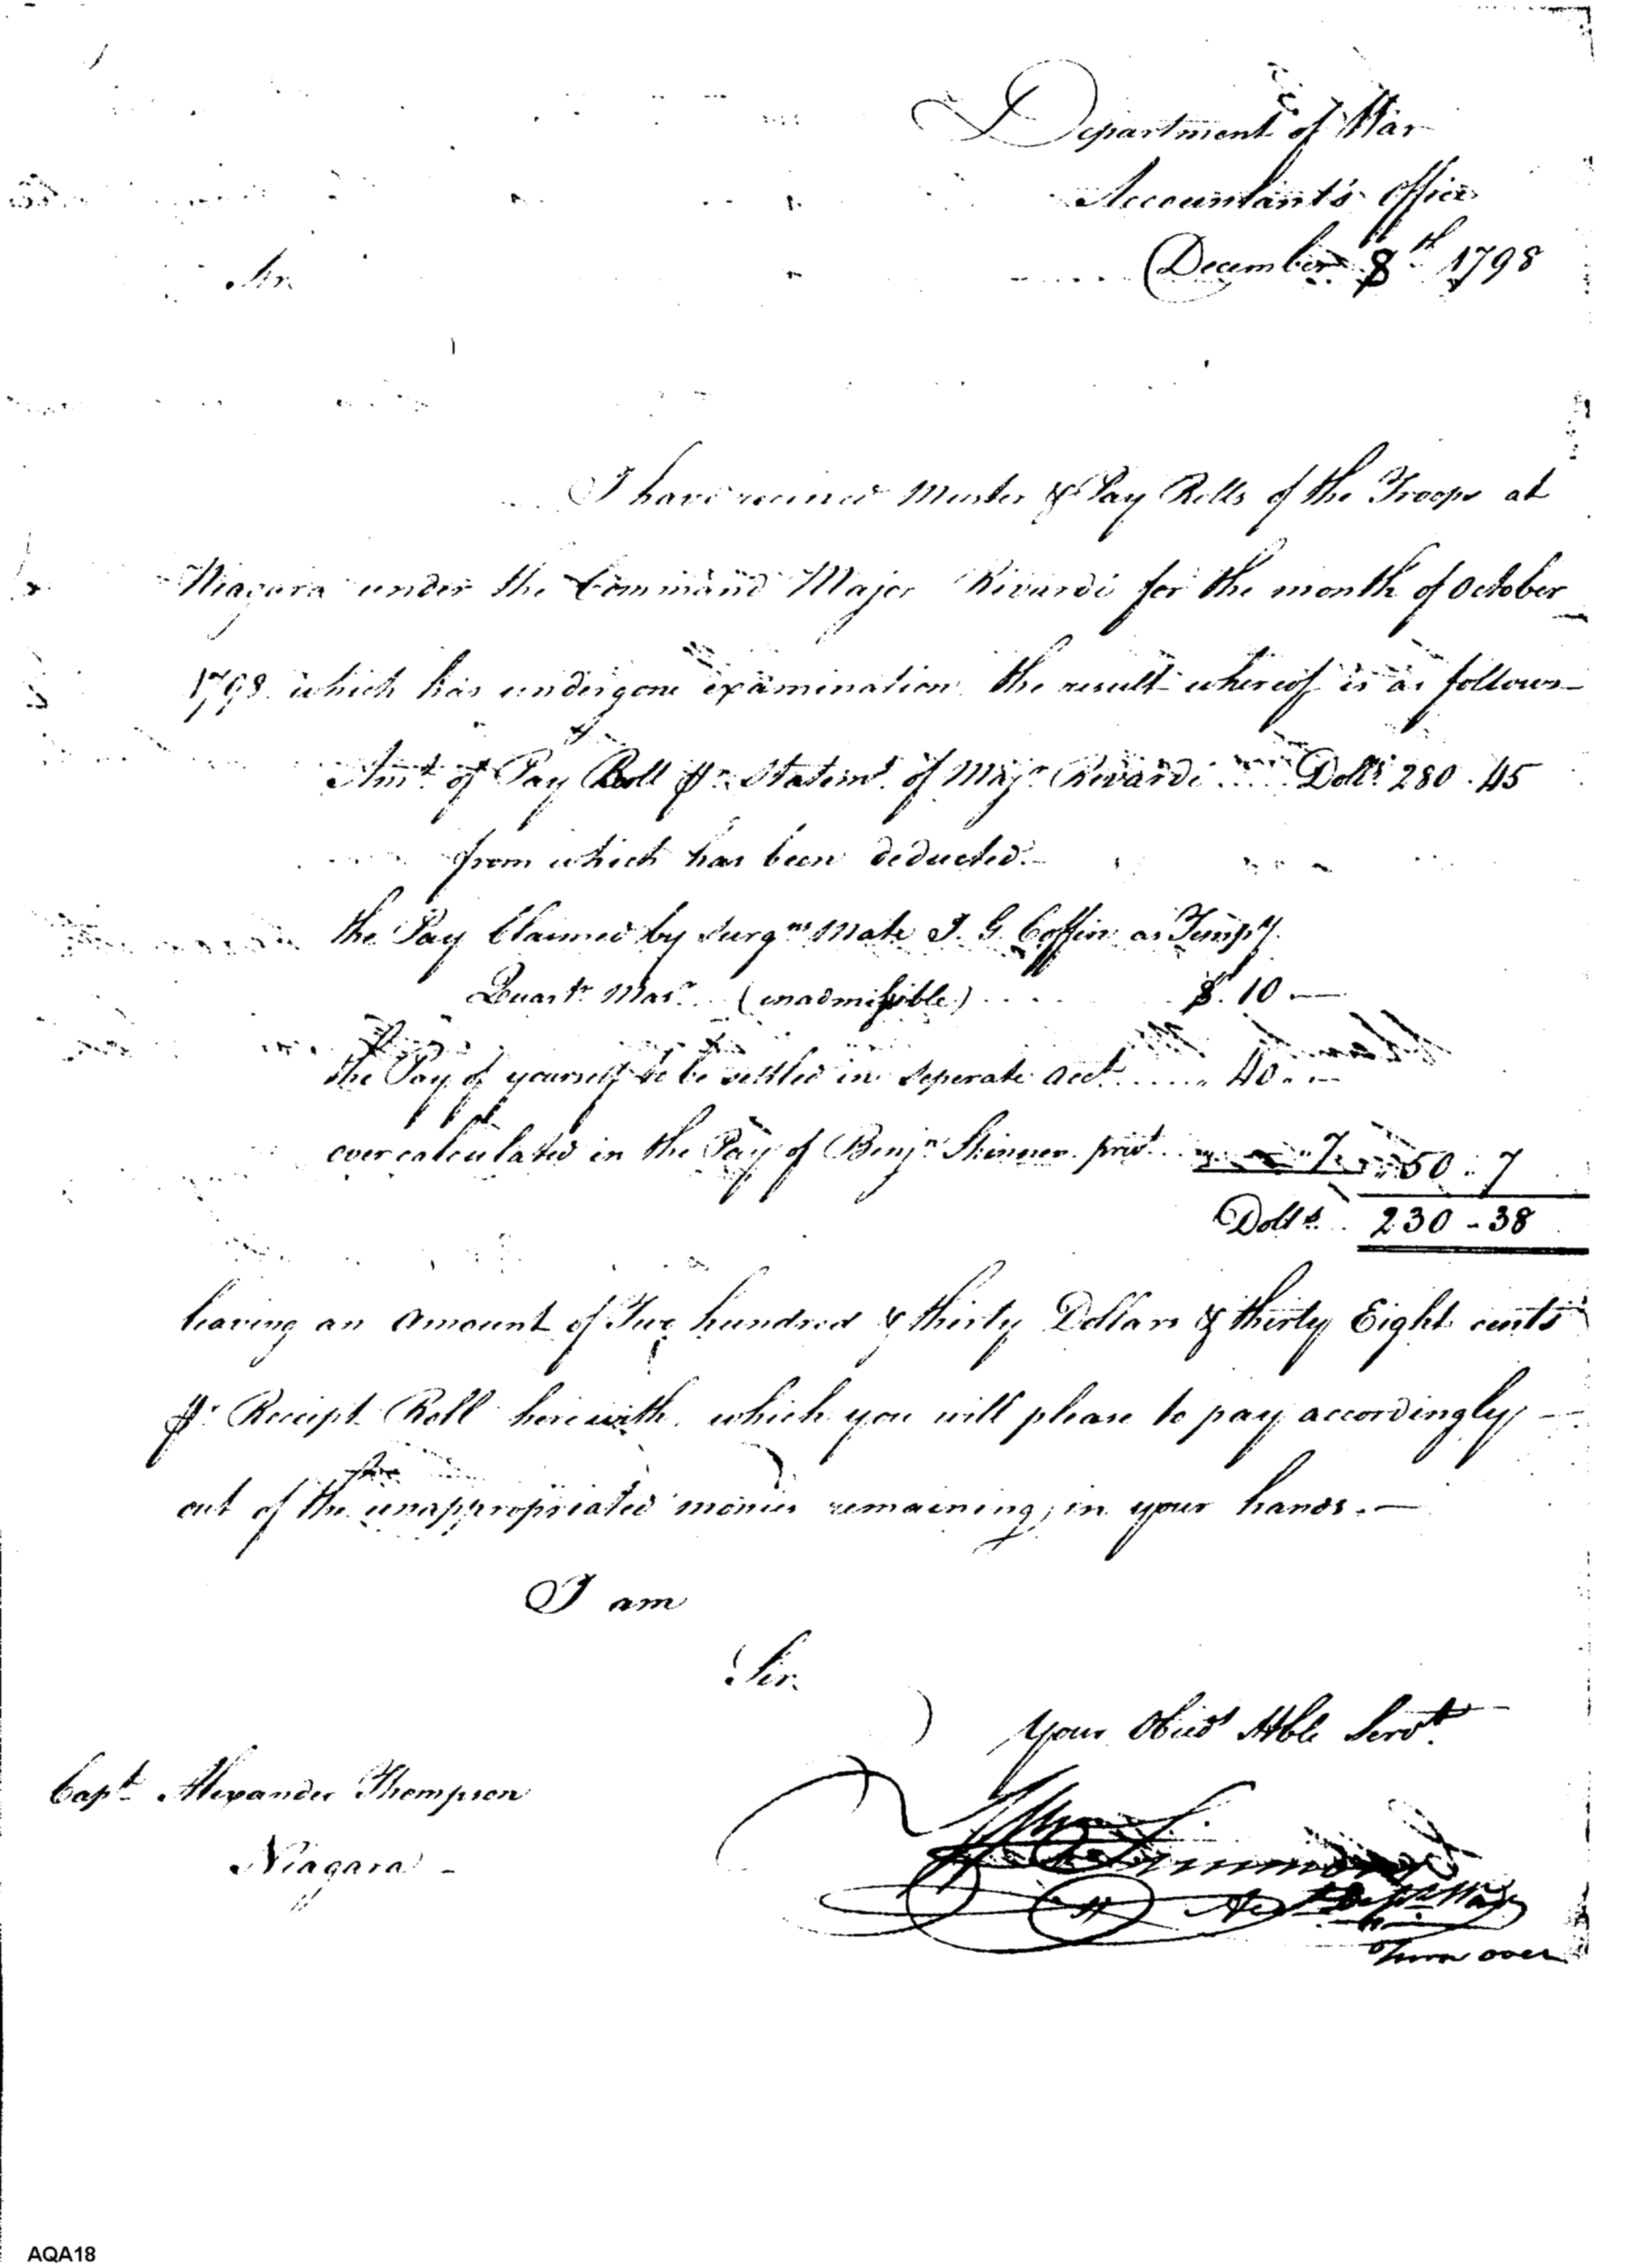 Department of War
Accountant's Office
December 8th 1798
Sir
I have received Muster & Pay Rolls of the Troops at
Niagara under the Command Major Rivardi for the month of October
1798 which has undergone examination the result whereof is as follows
Amt. of Pay Roll pr. Statemt. of Majr. Rivardi .... Dolls. 280.45
from which has been deducted.
the Pay Claimed by Surgns Mate J. G. Coffin as Tempy.
Quartr. Masr. (inadmissible) .... $.10.—
the Pay of yourself to be settled in seperate acct. ..... 40.—
over calculated in the Pay of Benjn. Skinner privt. .. 7 .. 50.7
Dolls. 230-38
leaving an Amount of Two hundred & thirty Dollars & thirty Eight cents
pr. Receipt Roll herewith, which you will please to pay accordingly, —
out of the unappropriated monies remaining, in your hands. —
I am
Sir.
Your Obedt Hble Servt.
Capt. Alexander Thompson
Wm Simmons
Niagara -
Acct Dept War
Turn over
AQA18